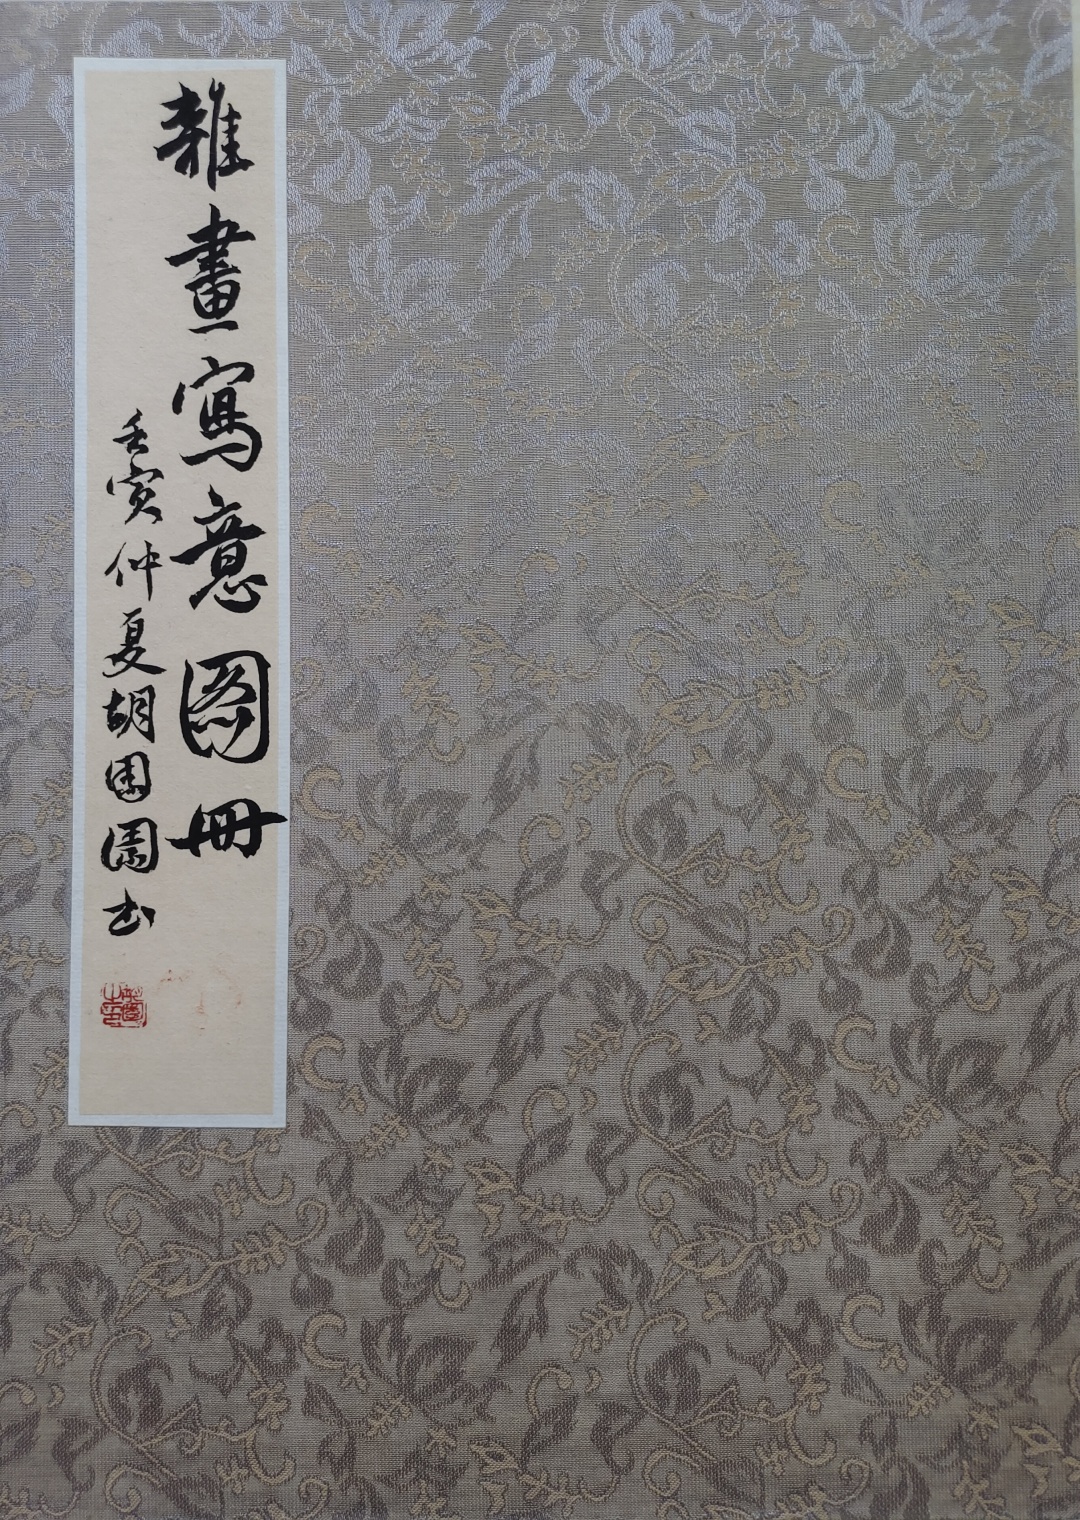 雜畫寫意圖冊
壬寅仲夏胡園书